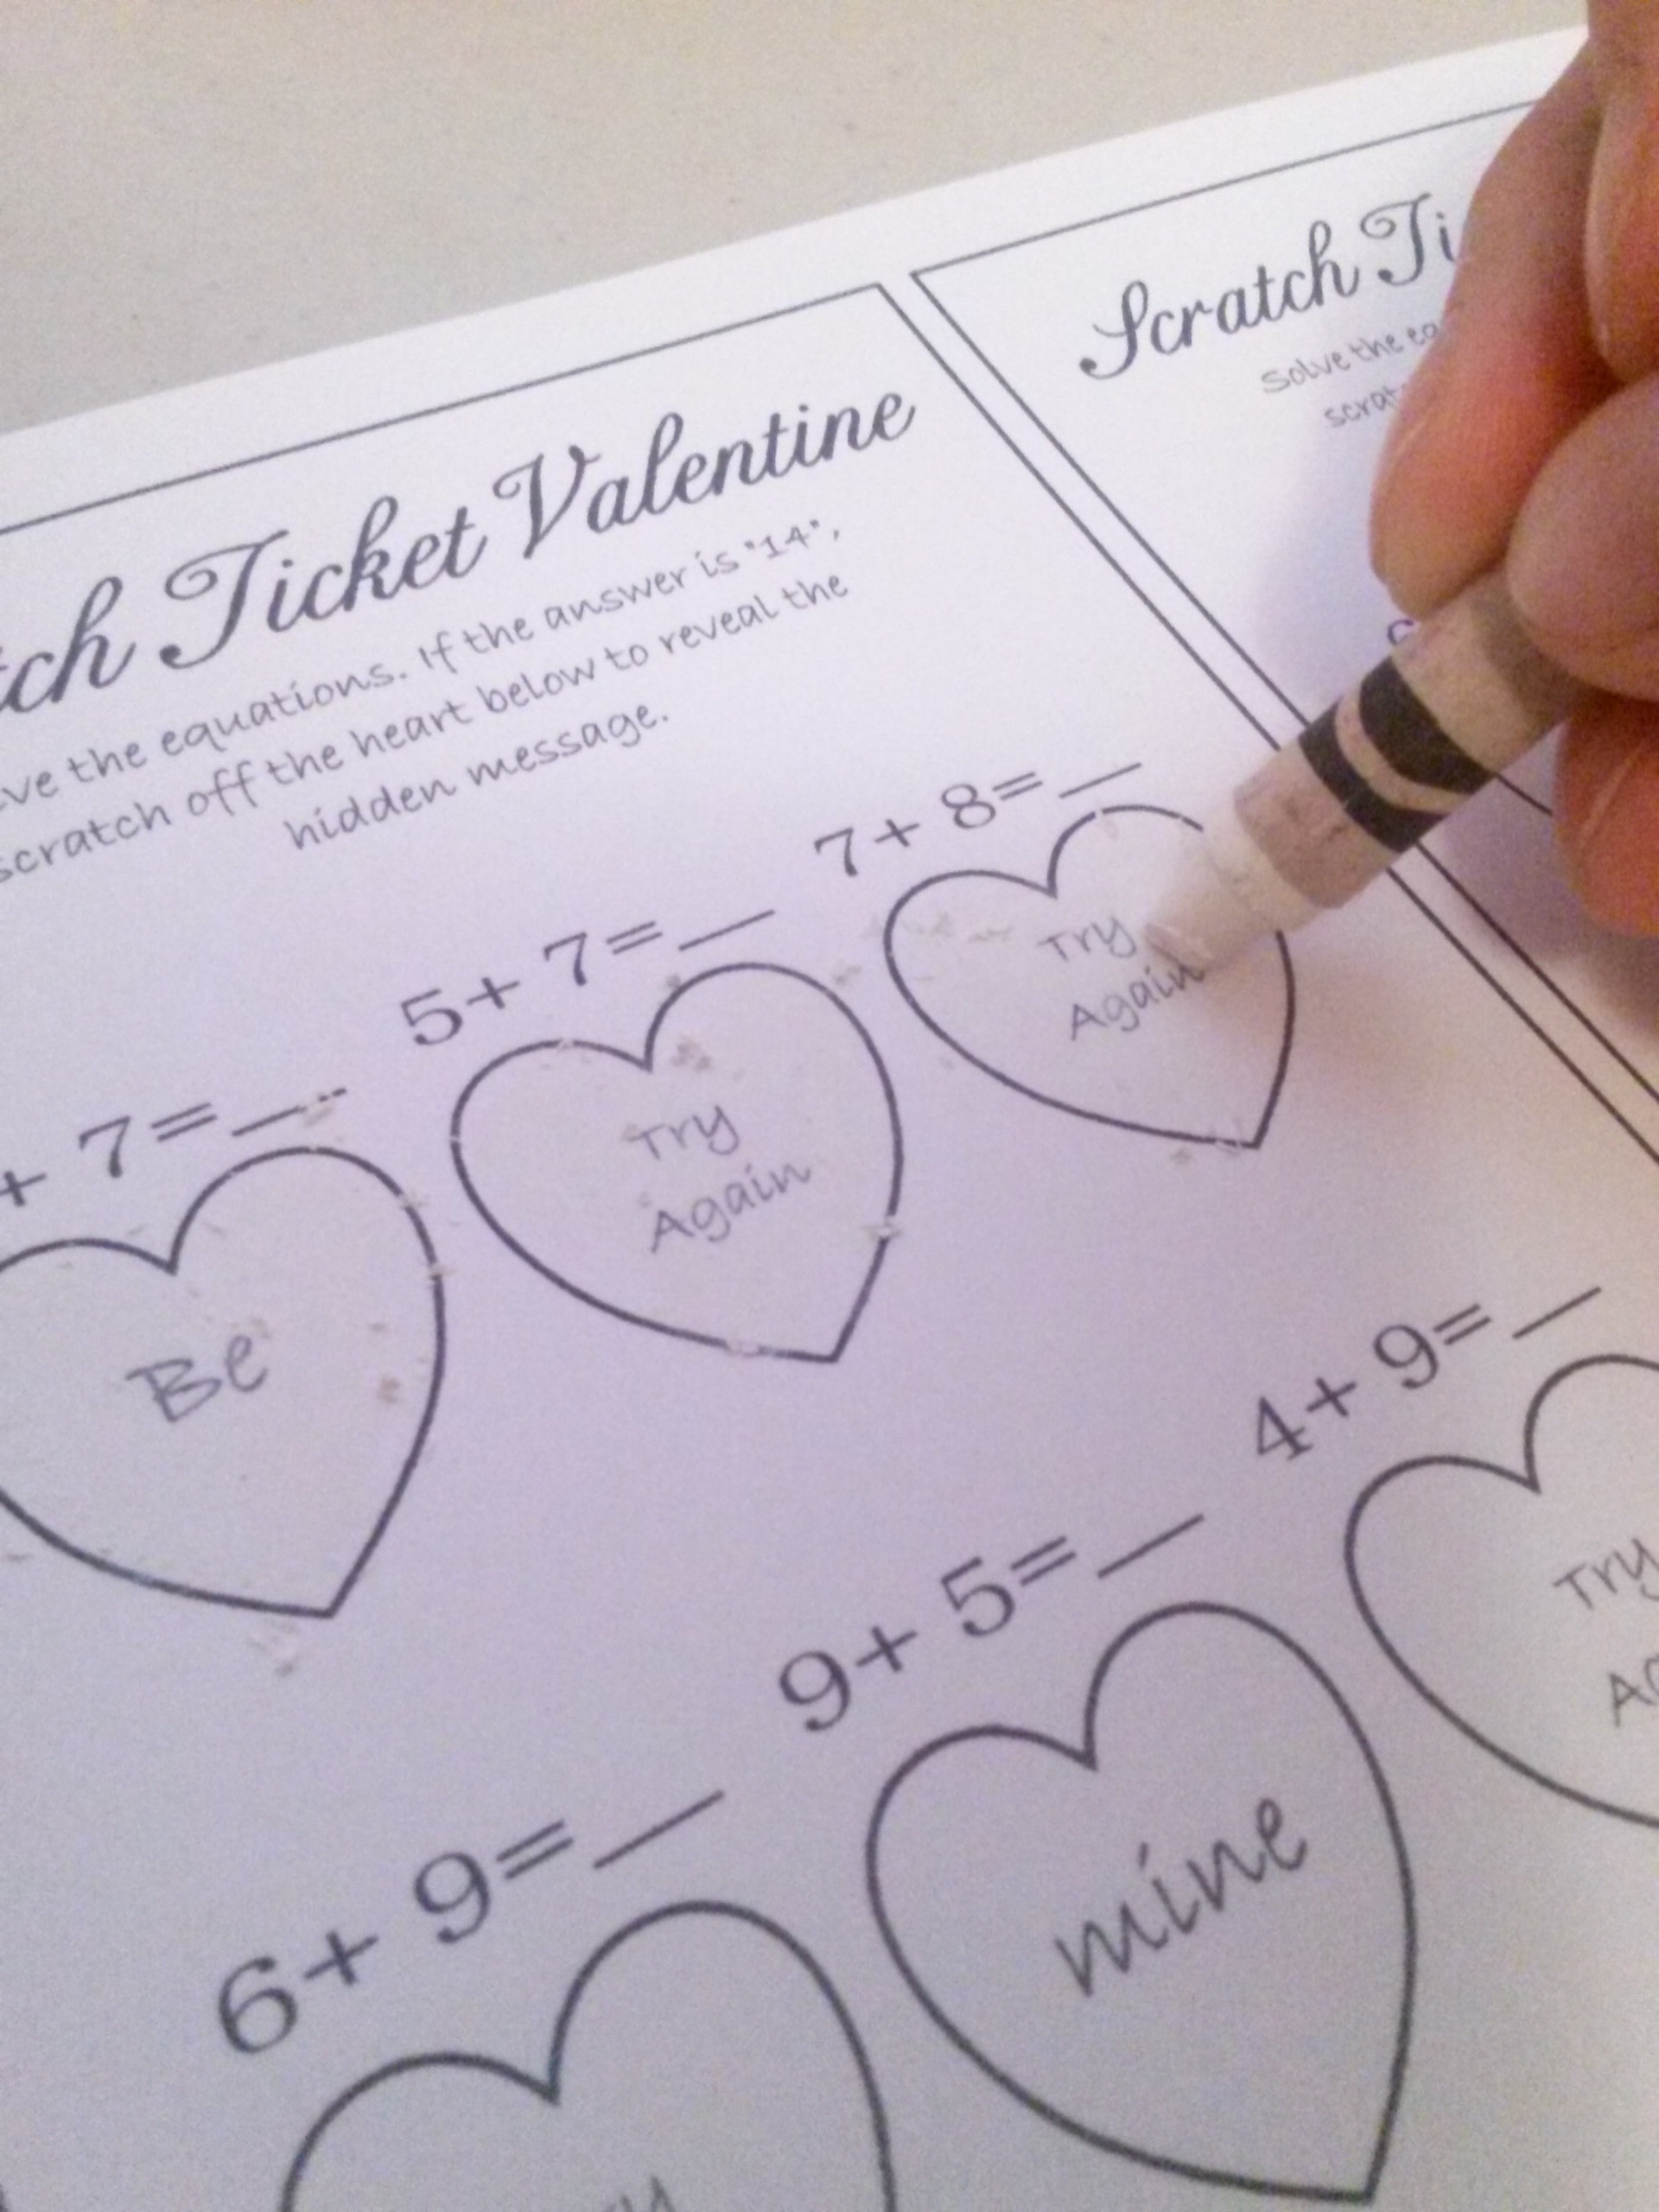 Ticket Valentine
the equations. If the answer is "14",
scratch off the heart below to reveal the
hidden message.
+ 7=__
5+ 7=__
7+ 8=__
Be
Try
Again
Try
Again
6+ 9=__
9+ 5=__
4+ 9=__
mine
Try
Scratch
Solve the